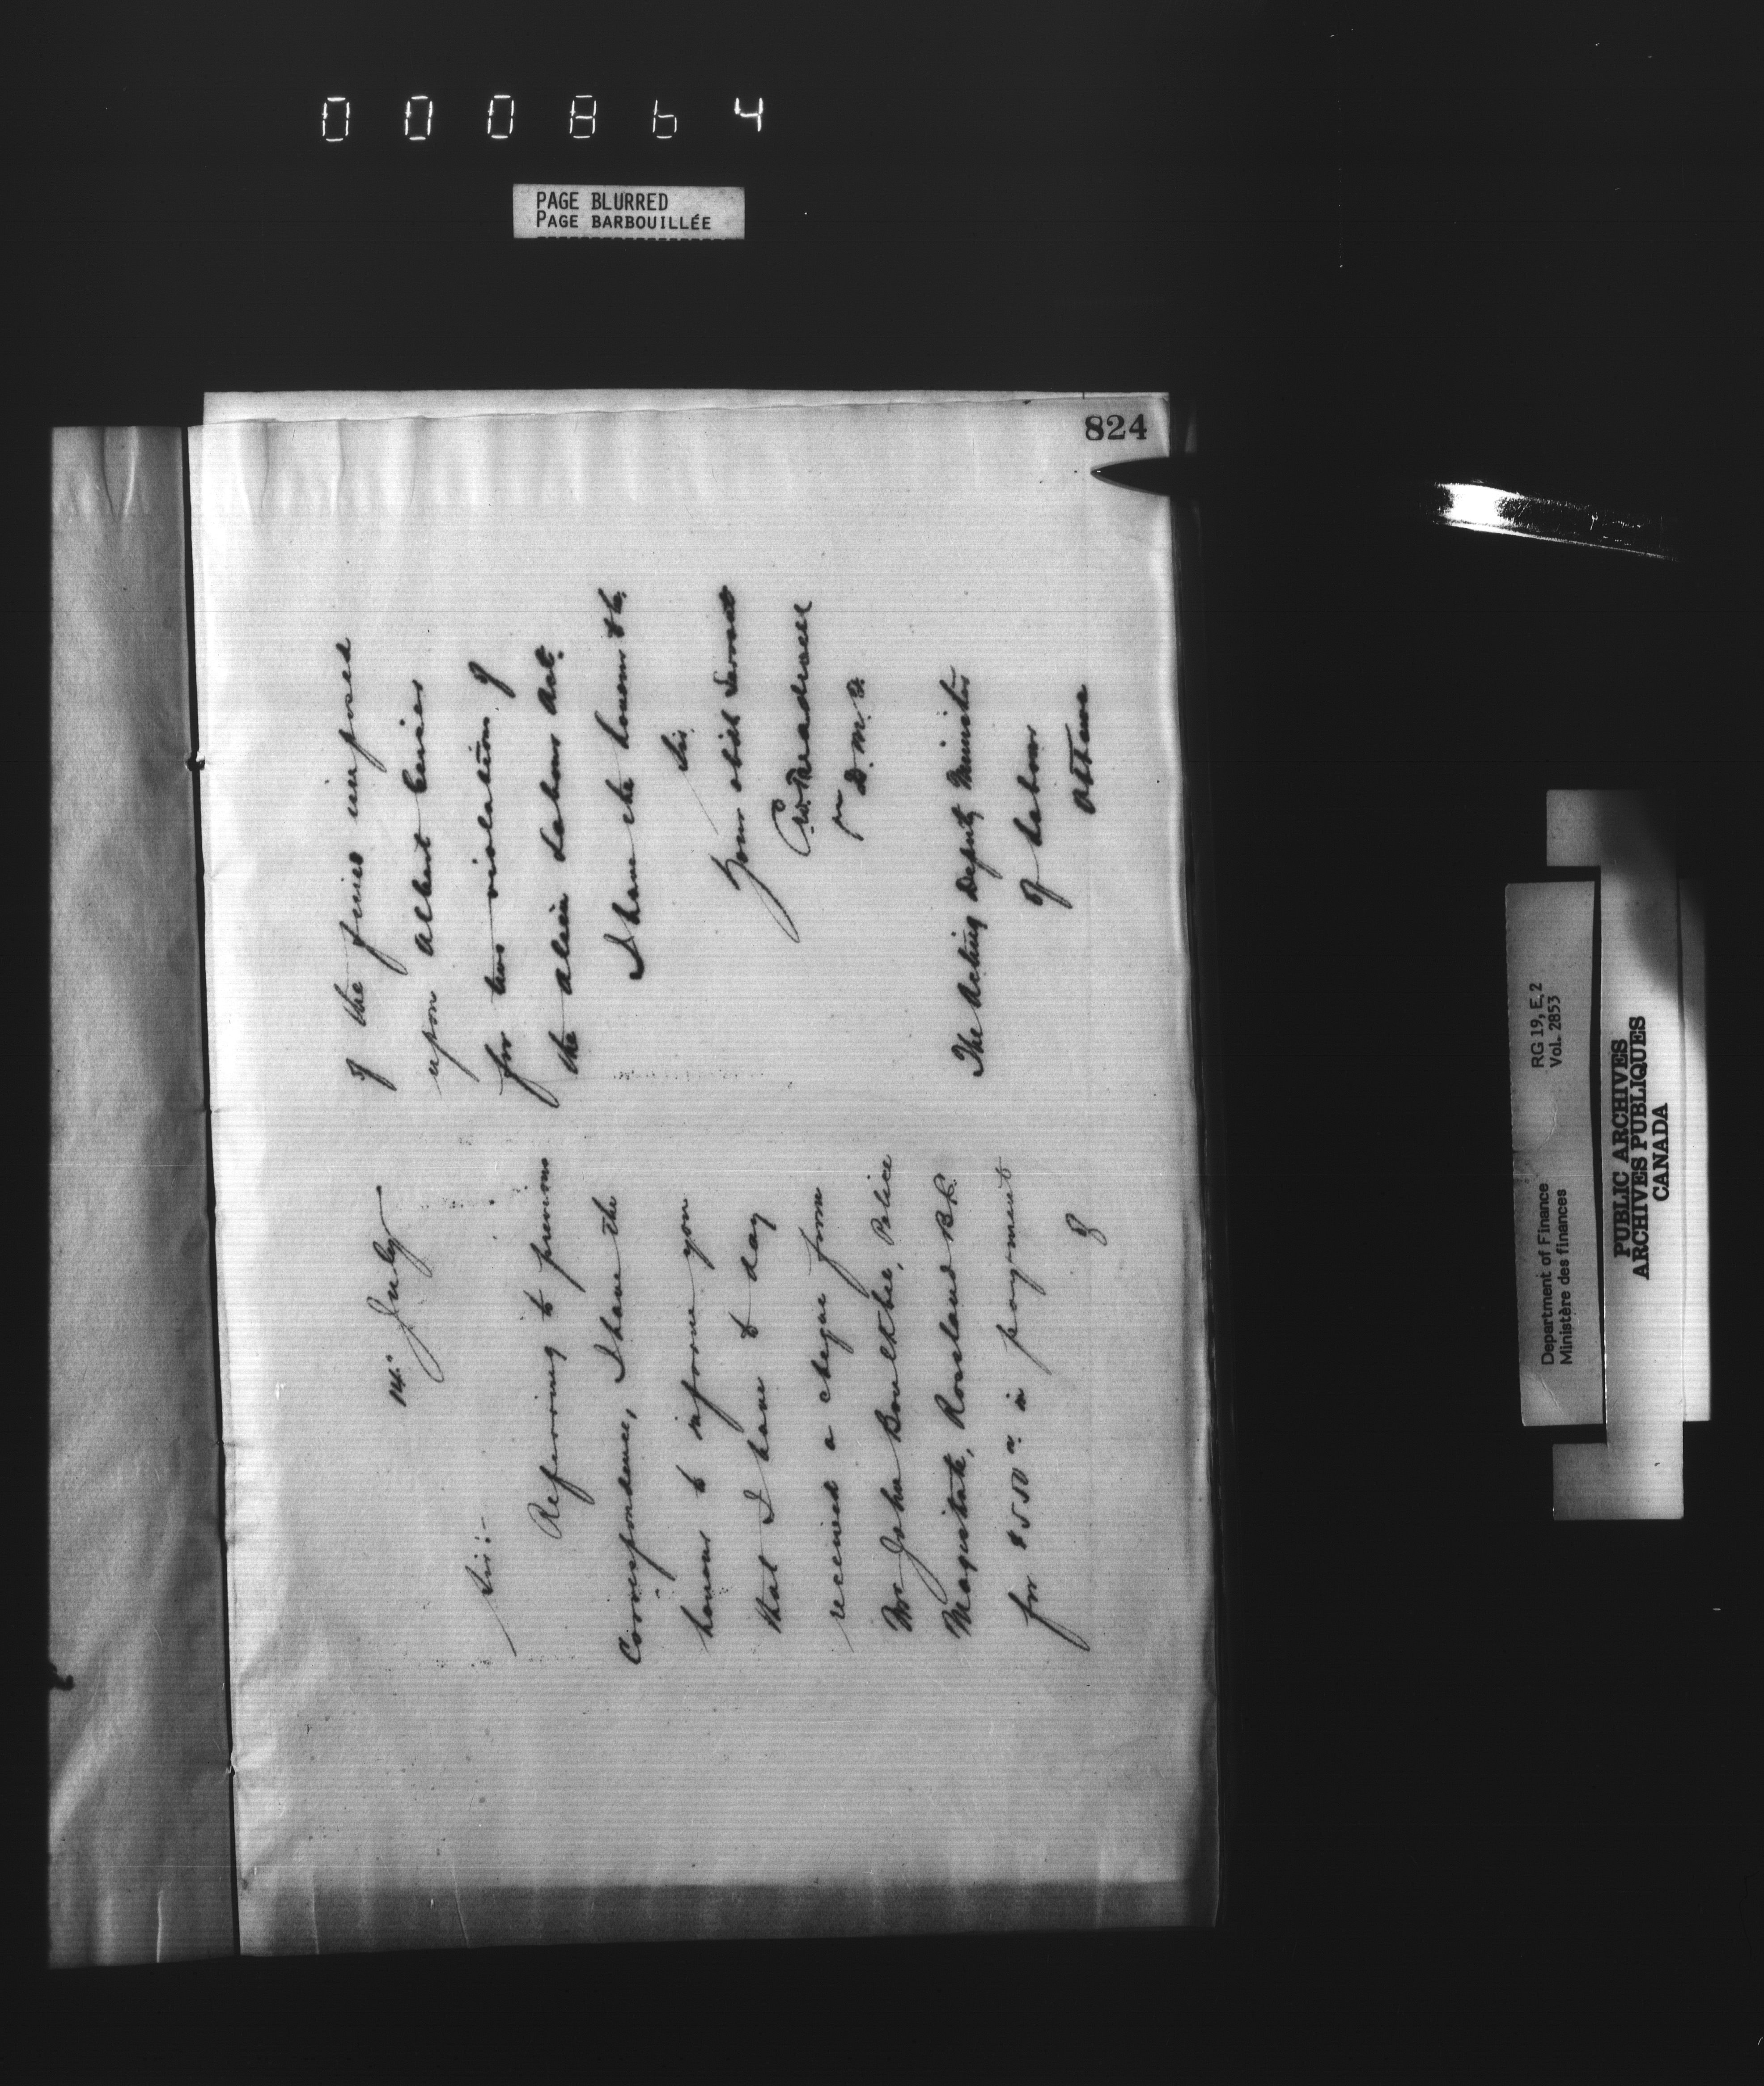 000864
PAGE BLURRED
PAGE BARBOUILLÉE
824
14. July
Sir:-
Referring to previous
Correspondence, I have the
honour to inform you
that I have to day
received a cheque from
Mr John Boultbee, Police
Magistrate, Rossland B.C.
for $550 in payment
of
of the fines imposed
upon Albert
for two violations of
the Alien Labour Act.
I have the honour &c.
Sir
Your obdt Servant
D.M.F.
The Acting Deputy Minister
of Labour
Ottawa
Department of Finance
Ministère des finances
RG 19, E.2
Vol. 2853
PUBLIC ARCHIVES
ARCHIVES PUBLIQUES
CANADA